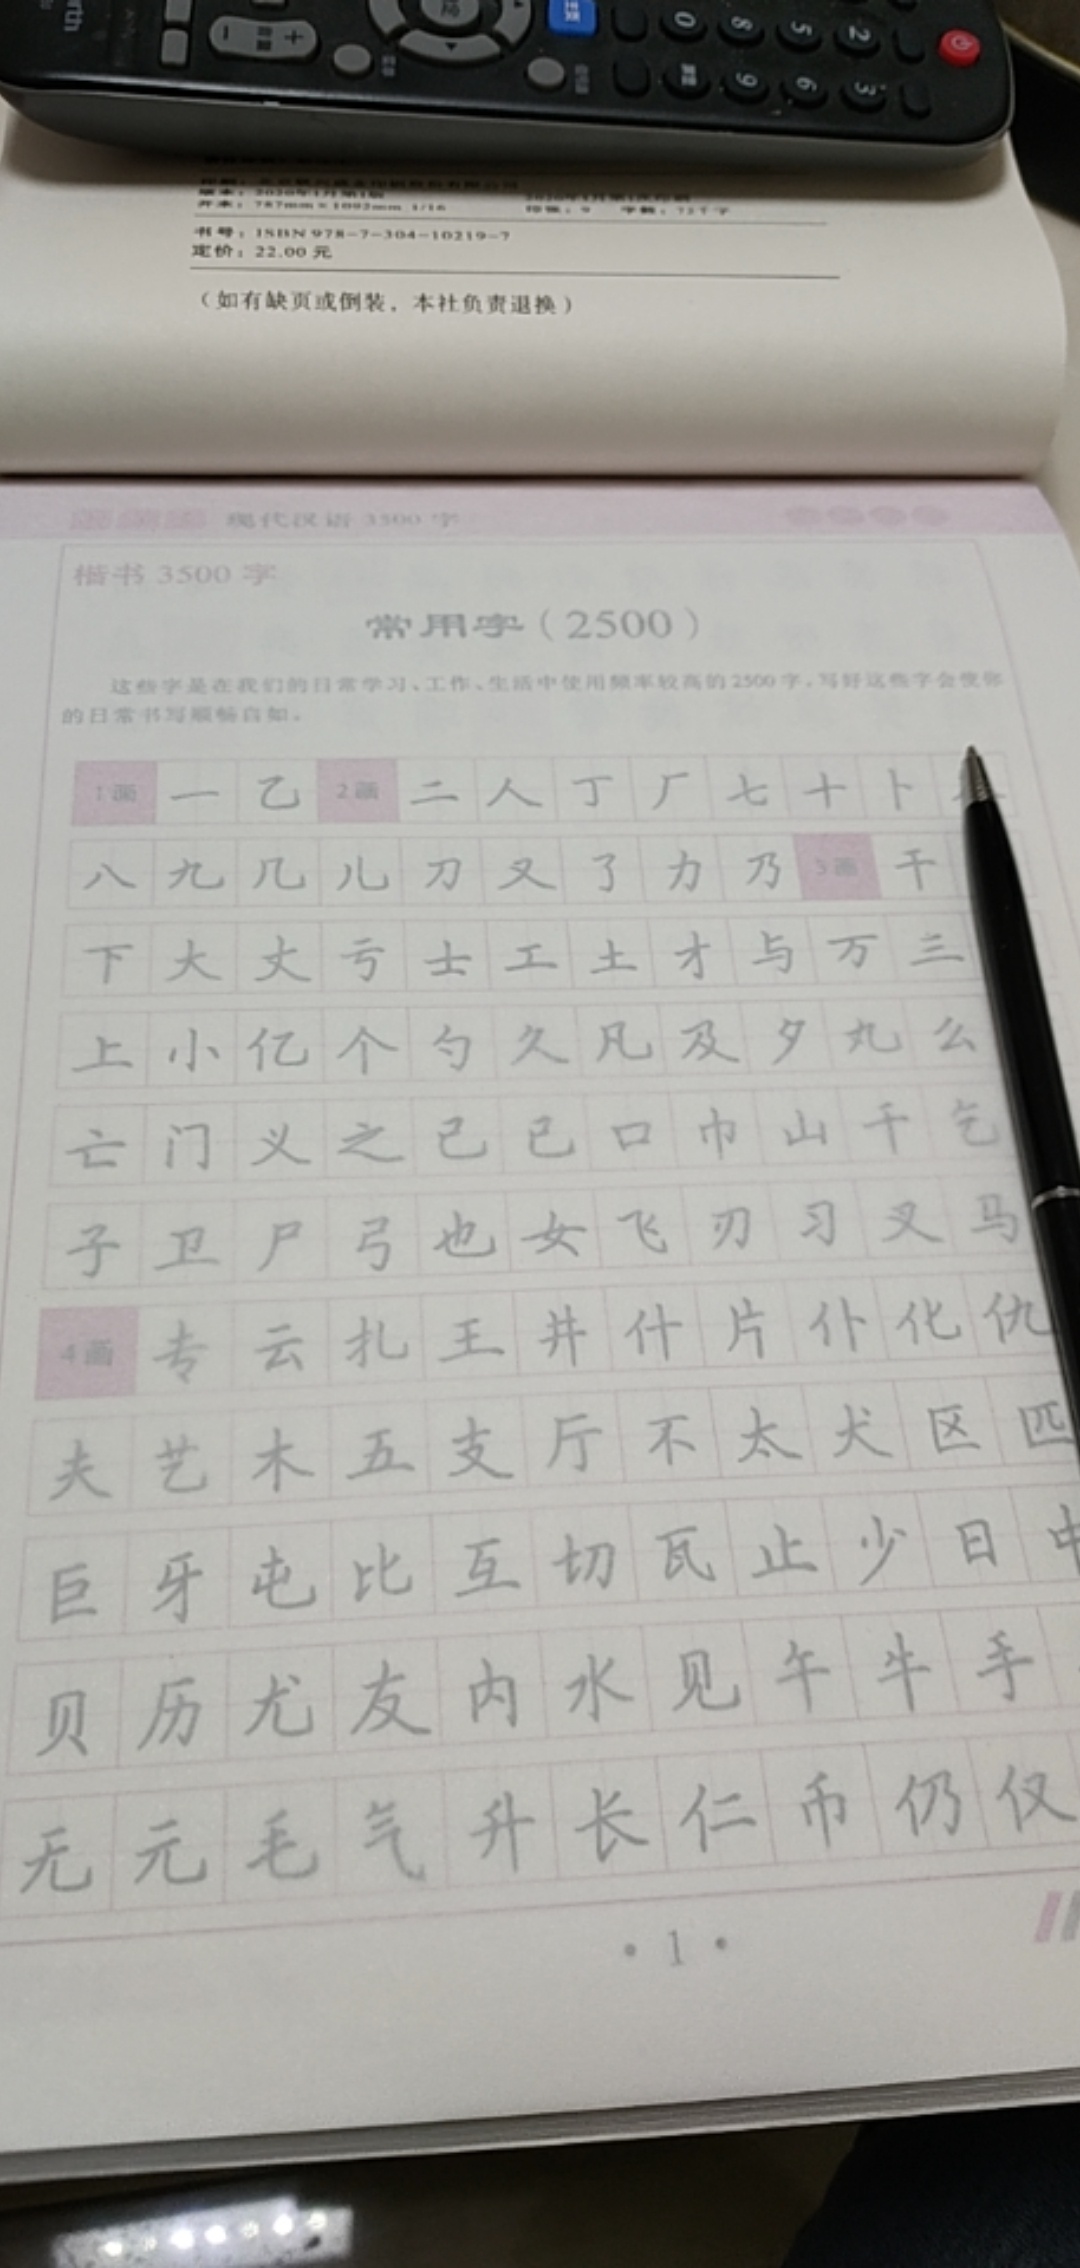 0 8 5 2
9 6 3
版本：2020年1月第1版
开本：787mm×1092mm 1/16 印张：9 字数：75千字
书号：ISBN 978-7-304-10219-7
定价：22.00 元
（如有缺页或倒装，本社负责退换）
现代汉语 3500 字
楷书 3500 字
常用字（2500）
这些字是在我们的日常学习、工作、生活中使用频率较高的2500字，写好这些字会使你
的日常书写顺畅自如。
1画 一 乙 2画 二 人 丁 厂 七 十 卜
八 九 几 儿 刀 又 了 力 乃 3画 干
下 大 丈 亏 士 工 土 才 与 万 三
上 小 亿 个 勺 久 凡 及 夕 丸 么
亡 门 义 之 己 已 口 巾 山 千 乞
子 卫 尸 弓 也 女 飞 刃 习 叉 马
4画 专 云 扎 王 井 什 片 仆 化 仇
夫 艺 木 五 支 厅 不 太 犬 区 匹
巨 牙 屯 比 互 切 瓦 止 少 日 中
贝 历 尤 友 内 水 见 午 牛 手
无 元 毛 气 升 长 仁 币 仍 仅
• 1 •